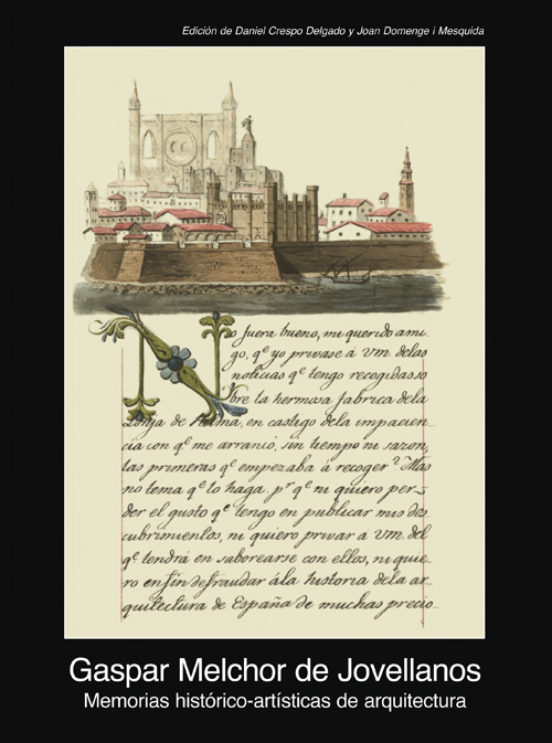 Edición de Daniel Crespo Delgado y Joan Domenge i Mesquida
No fuera bueno, mi querido ami-
go, qᵉ yo privase á Vm. delas
noticias qᵉ tengo recogidas so
bre la hermosa fabrica dela
Lonja de Palma, en castigo dela impacien-
cia con qᵉ me arrancó, sin tiempo ni sazon,
las primeras qᵉ empezaba á recoger? Mas
no tema qᵉ lo haga. pʳ qᵉ ni quiero per-
der el gusto qᵉ tengo en publicar mis des
cubrimientos, ni quiero privar a Vm. del
qᵉ tendrá en saborearse con ellos, ni quie-
ro enfin defraudar ála historia dela ar-
quitectura de España de muchas precio-
Gaspar Melchor de Jovellanos
Memorias histórico-artísticas de arquitectura